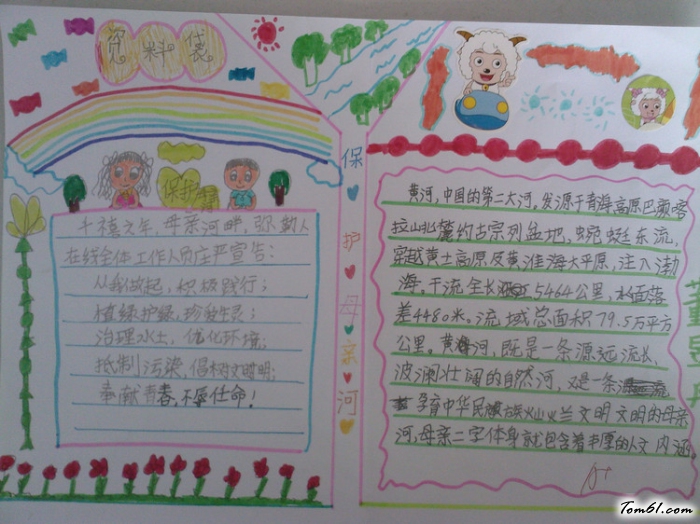 资料袋
保护
千禧之年，母亲河畔，弥勒人
在线全体工作人员庄严宣告：
从我做起，积极践行；
植绿护绿，珍爱生灵；
治理水土，优化环境；
抵制污染，倡树文明；
奉献青春，不辱使命！
保护母亲河
黄河，中国的第二大河，发源于青海高原巴颜喀
拉山北麓约古宗列盆地，蜿蜒东流，
穿越黄土高原及黄淮海大平原，注入渤
海，干流全长5464公里，水面落
差4480米，流域总面积79.5万平方
公里。黄河，既是一条源远流长、
波澜壮阔的自然河，又是一条
孕育中华民族灿烂文明文明的母亲
河，母亲二字体身就包含着丰厚的人文内涵。
A+
Tom61.com